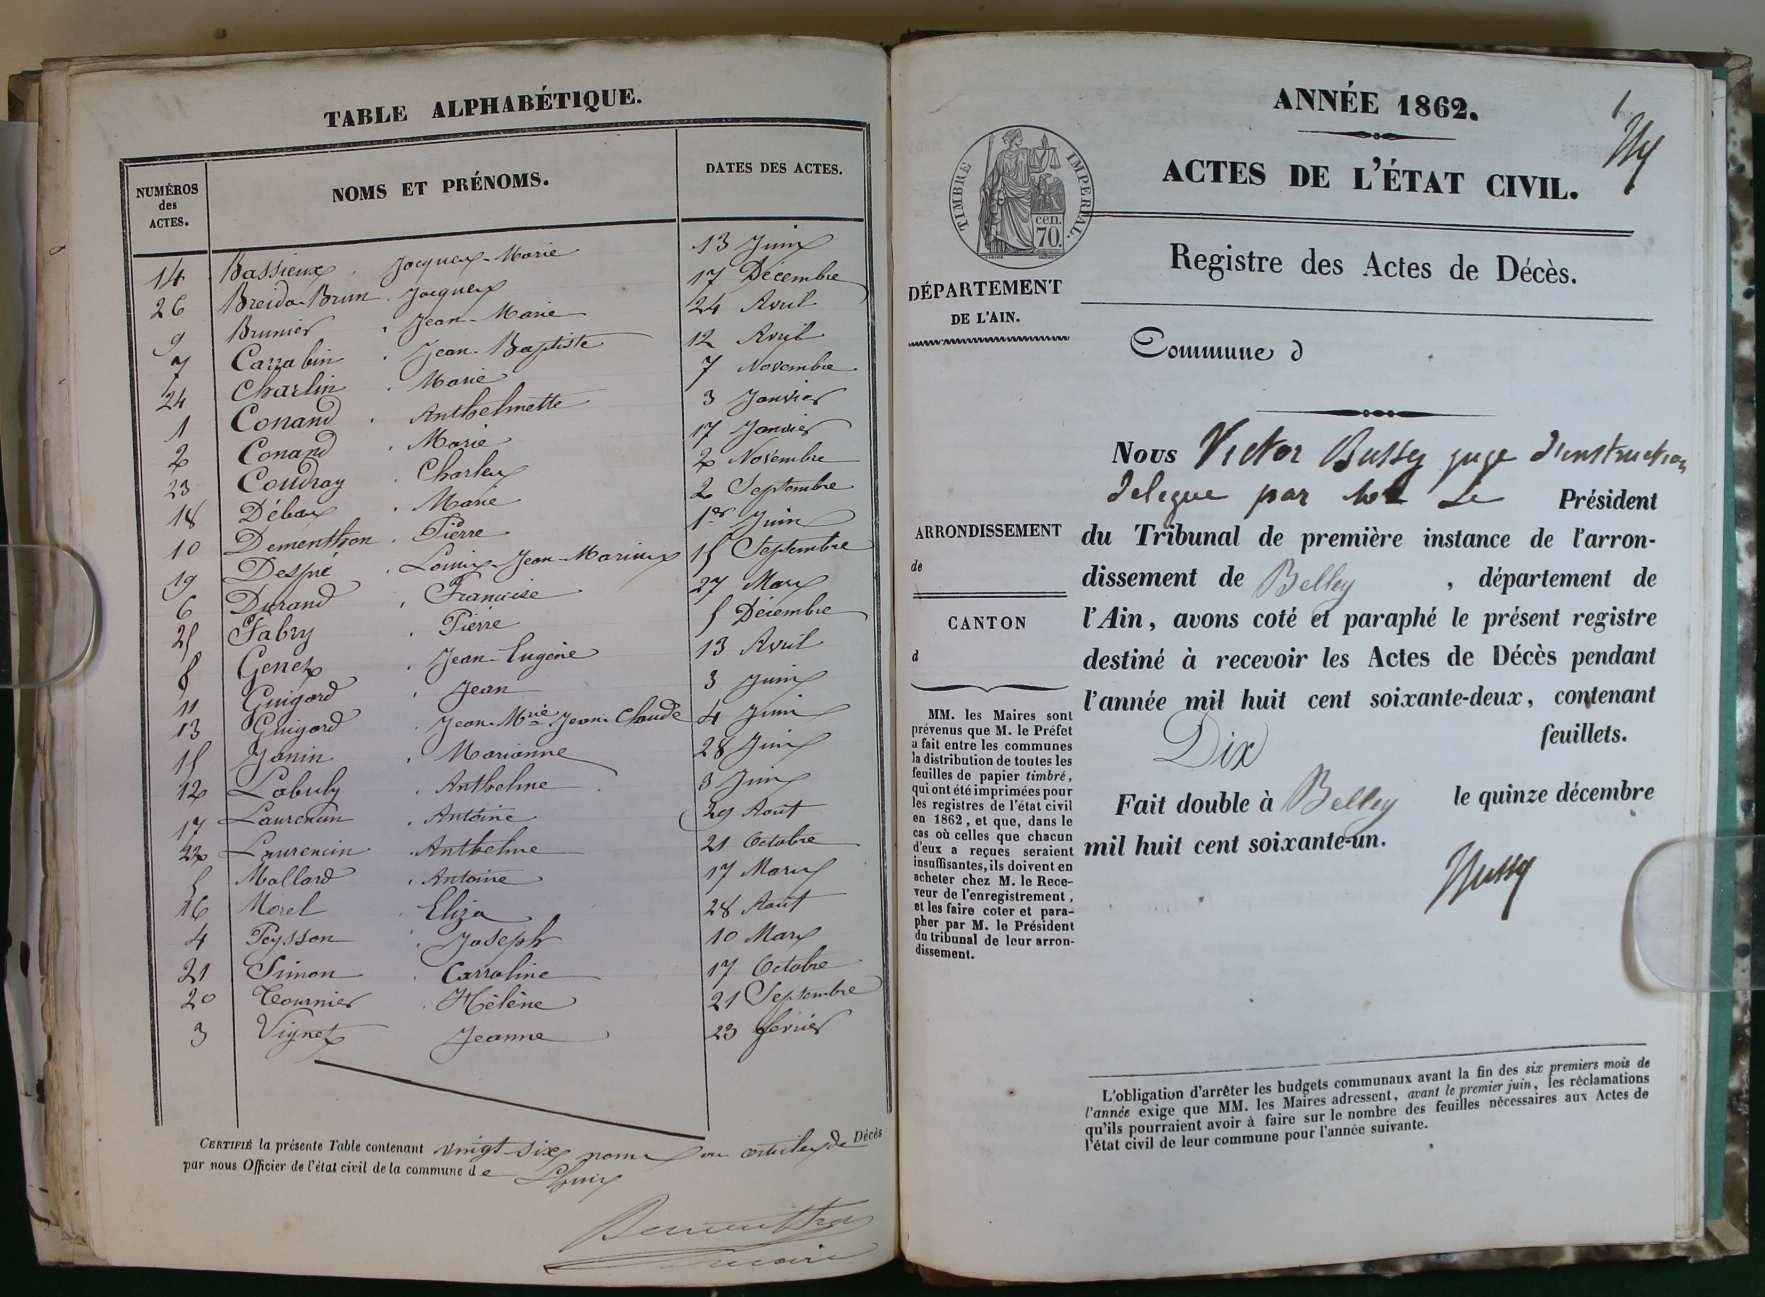 TABLE ALPHABÉTIQUE.
NUMÉROS des ACTES. NOMS ET PRÉNOMS. DATES DES ACTES.
14 Bassieux, Jacques-Marie 13 Juin
26 Breida-Brun Jacques 17 Décembre
9 Brunier, Jean-Marie 24 Avril
7 Carrabin, Jean-Baptiste 12 Avril
24 Charlin, Marie 7 Novembre
1 Conand, Anthelmette 3 Janvier
2 Conand, Marie 17 Janvier
23 Coudray, Charles 2 Novembre
18 Débaux, Marie 2 Septembre
10 Dementhon, Pierre 1er Juin
19 Despré, Louis-Jean-Marius 15 Septembre
6 Durand, Françoise 27 Mars
25 Fabry, Pierre 5 Décembre
8 Genet, Jean-Eugène 13 Avril
11 Guigard, Jean 3 Juin
13 Guigard, Jean-Mrie Jean-Claude 4 Juin
15 Janin, Marianne 28 Juin
12 Labuly, Anthelme 3 Juin
17 Laurencin, Antoine 29 Aout
22 Laurencin, Anthelme 21 Octobre
5 Mallard, Antoine 17 Mars
16 Morel, Eliza 28 Aout
4 Peysson, Joseph 10 Mars
21 Simon, Carroline 17 Octobre
20 Tournier, Hélène 21 Septembre
3 Vignet Jeanne 23 février
CERTIFIÉ la présente Table contenant vingt-six noms ou articles de Décès
par nous Officier de l'état civil de la commune de Lhuis
maire
ANNÉE 1862.
ACTES DE L'ÉTAT CIVIL.
TIMBRE IMPÉRIAL.
cen.
70.
Registre des Actes de Décès.
DÉPARTEMENT
DE L'AIN.
Commune d
ARRONDISSEMENT
de
CANTON
d
MM. les Maires sont
prévenus que M. le Préfet
a fait entre les communes
la distribution de toutes les
feuilles de papier timbré,
qui ont été imprimées pour
les registres de l'état civil
en 1862, et que, dans le
cas où celles que chacun
d'eux a reçues seraient
insuffisantes, ils doivent en
acheter chez M. le Rece-
veur de l'enregistrement,
et les faire coter et para-
pher par M. le Président
du tribunal de leur arron-
dissement.
Nous Victor Bussy juge d'instruction
délégué par Mr Le Président
du Tribunal de première instance de l'arron-
dissement de Belley, département de
l'Ain, avons coté et paraphé le présent registre
destiné à recevoir les Actes de Décès pendant
l'année mil huit cent soixante-deux, contenant
Dix feuillets.
Fait double à Belley le quinze décembre
mil huit cent soixante-un.
Bussy
L'obligation d'arrêter les budgets communaux avant la fin des six premiers mois de
l'année exige que MM. les Maires adressent, avant le premier juin, les réclamations
qu'ils pourraient avoir à faire sur le nombre des feuilles nécessaires aux Actes de
l'état civil de leur commune pour l'année suivante.